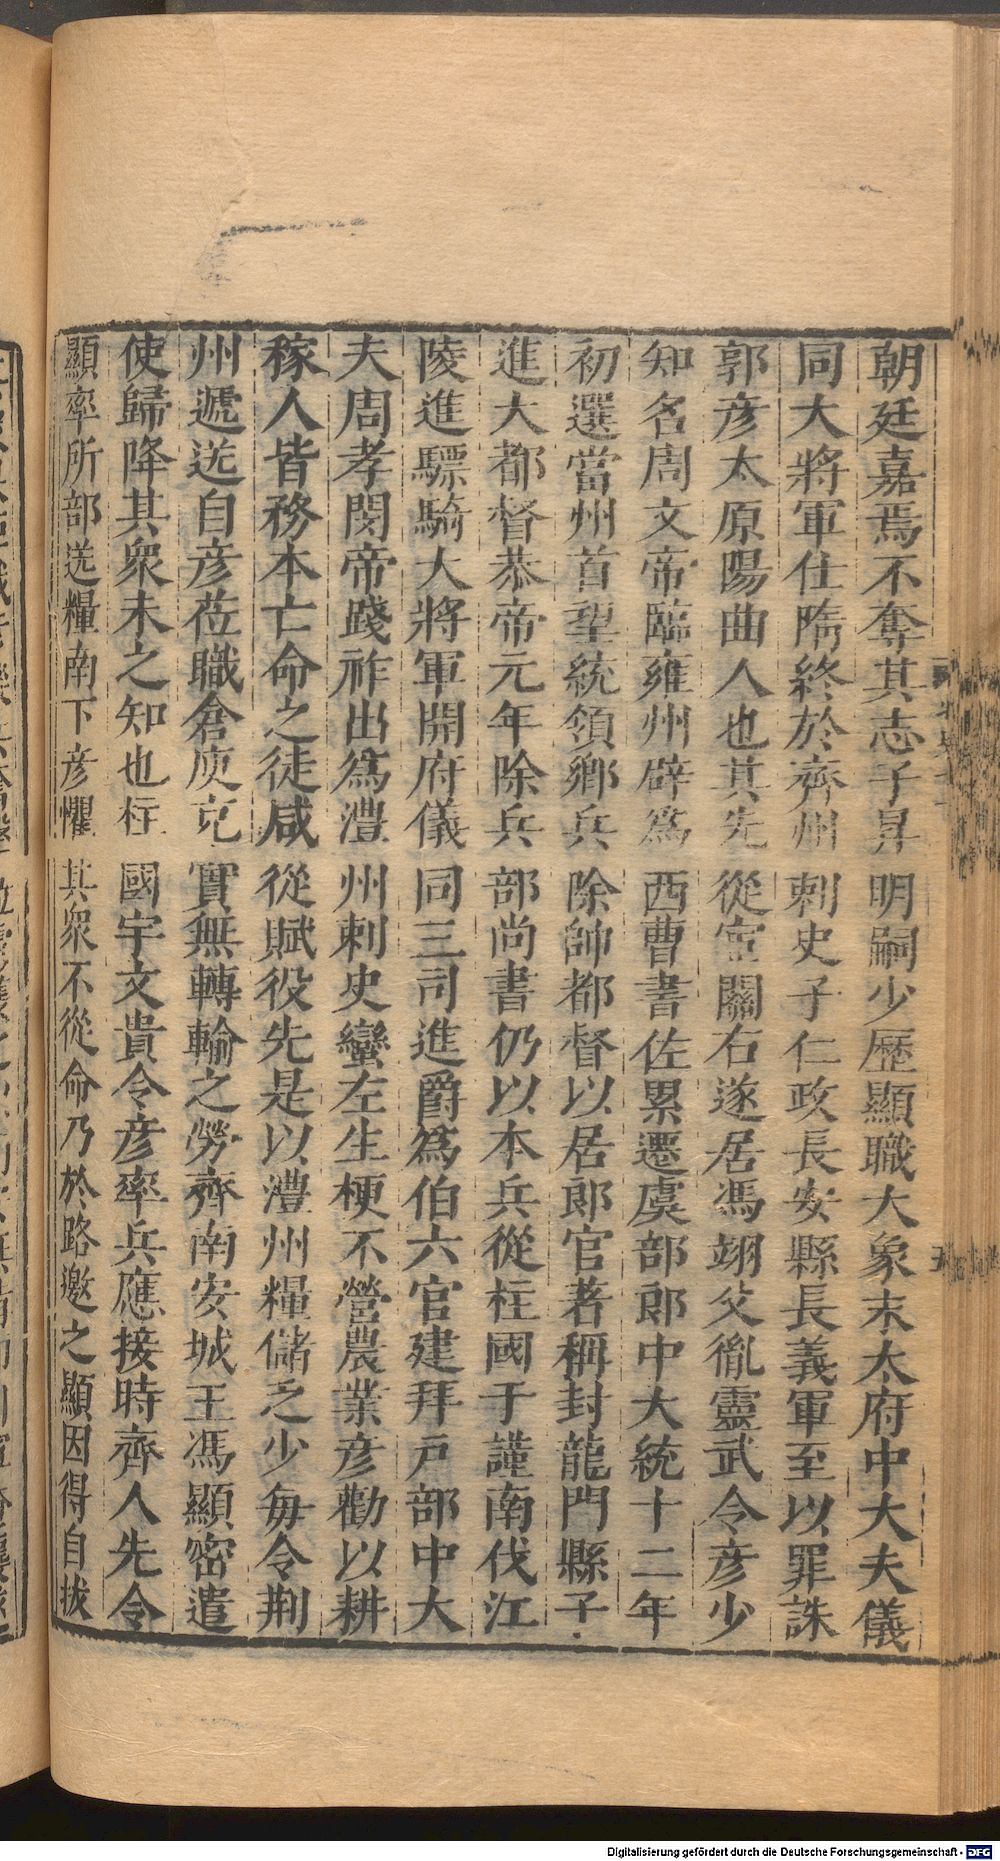 朝廷嘉焉不奪其志子昇明嗣少歷顯職大象末太府中大夫儀
同大將軍仕隋終於齊州刺史子仁政長安縣長義軍至以罪誅
郭彥太原陽曲人也其先從宦關右遂居馮翊父胤靈武令彥少
知名周文帝臨雍州辟爲西曹書佐累遷虞部郎中大統十二年
初選當州首望統領鄉兵除帥都督以居郎官著稱封龍門縣子
進大都督恭帝元年除兵部尚書仍以本兵從柱國于謹南伐江
陵進驃騎大將軍開府儀同三司進爵爲伯六官建拜戶部中大
夫周孝閔帝踐祚出爲澧州刺史蠻左生梗不營農業彥勸以耕
稼人皆務本亡命之徒咸從賦役先是以澧州糧儲乏少每令荆
州遞送自彥莅職倉庾充實無轉輸之勞齊南安城王馮顯密遣
使歸降其衆未之知也柱國宇文貴令彥率兵應接時齊人先令
顯率所部送糧南下彥懼其衆不從命乃於路邀之顯因得自拔
五
Digitalisierung gefördert durch die Deutsche Forschungsgemeinschaft - DFG